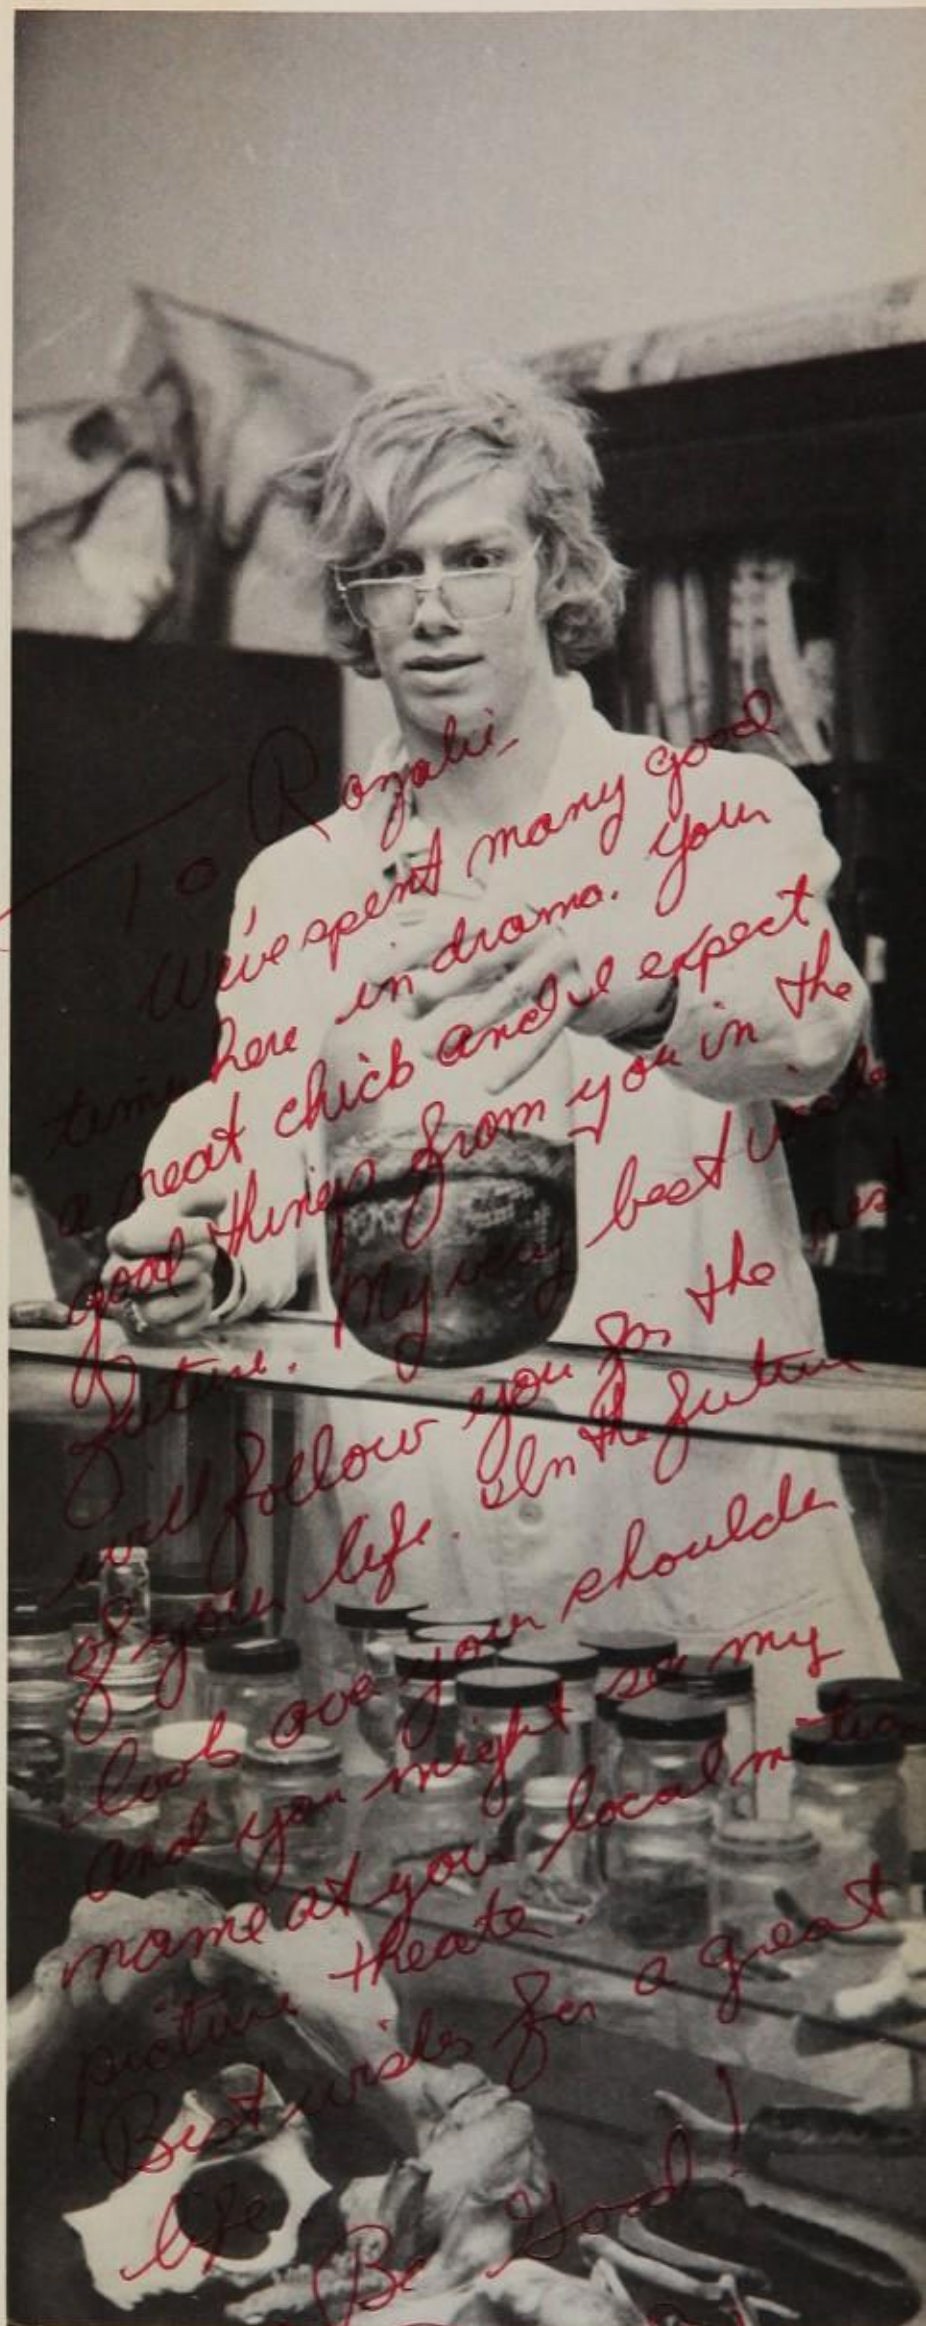 To Rozalie -
We've spent many good
time here in drama. Your
a neat chick and I expect
good things from you in the
future. My very best
will follow you for the rest
of your life. In the future
look ove your shoulder
and you might see my
name at your local motion
picture theate.
Best wishes for a great
life
Be Good!